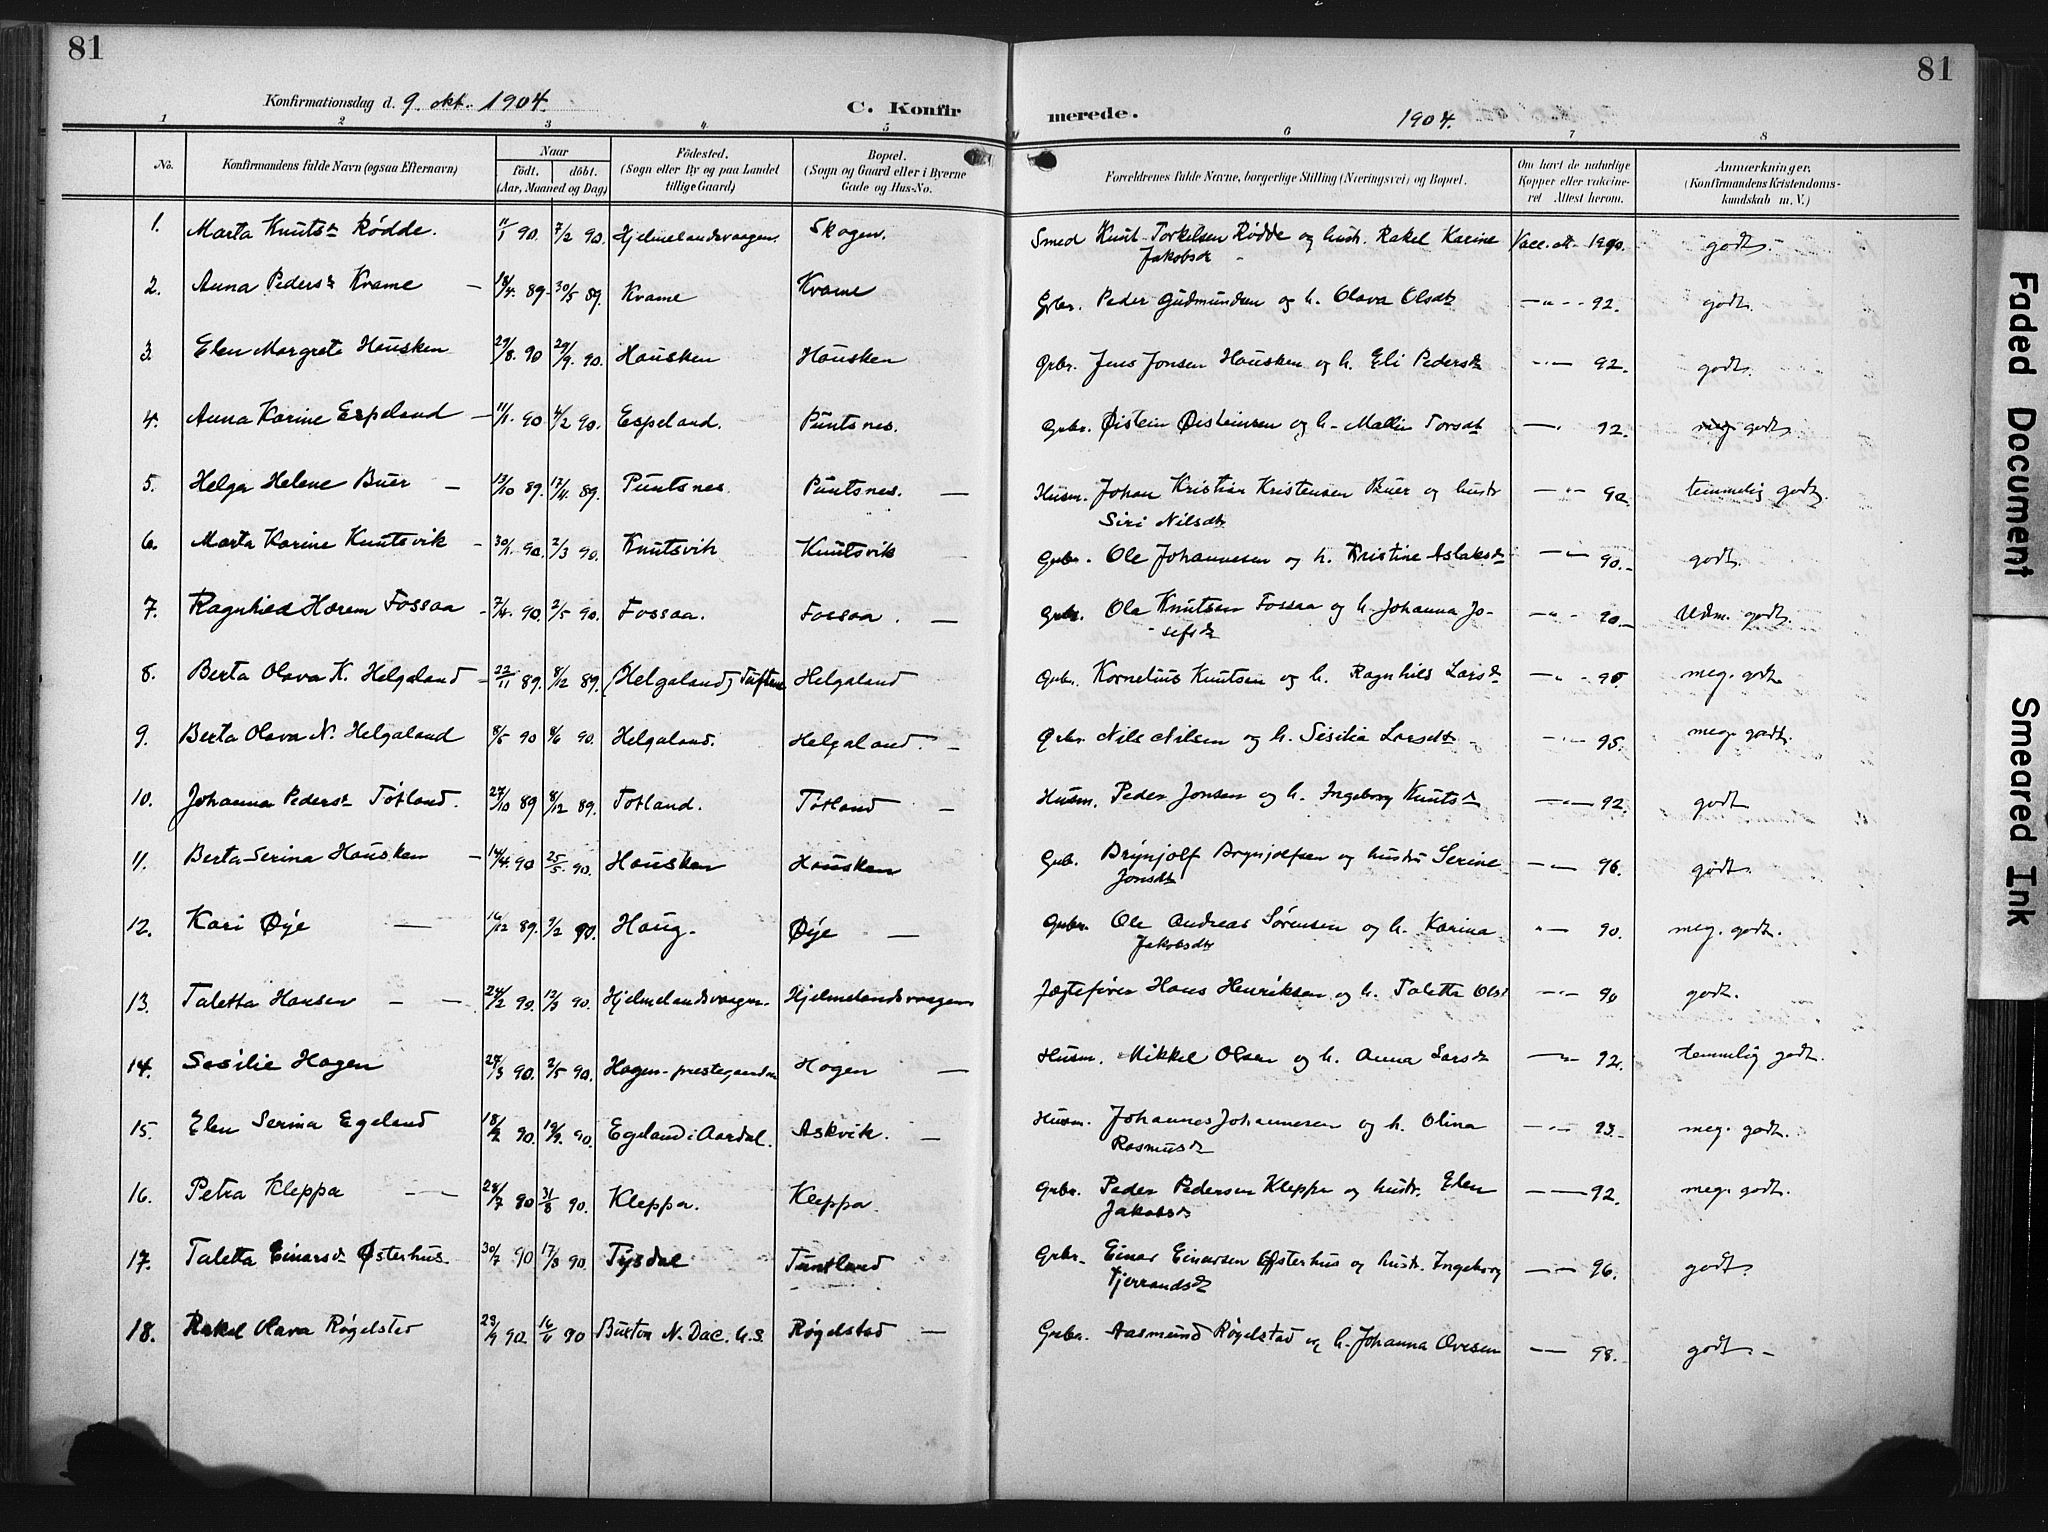 81
81
Konfirmationsdag d. 9. okt. 1904.
C. Konfir
merede.
1904.
1 2 3 4 5 6 7 8
No. Konfirmandens fulde Navn (ogsaa Efternavn) Naar födt. döbt. (Aar, Maaned og Dag) Födested. (Sogn eller By og paa Landet tillige Gaard) Bopæl. (Sogn og Gaard eller i Byerne Gade og Hus-No. Forældrenes fulde Navne, borgerlige Stilling (Næringsvei) og Bopæl. Om havt de naturlige Kopper eller vakcineret Attest herom. Anmærkninger. (Konfirmandens Kristendomskundskab m. V.)
1. Marta Knutsdt Rødde. 11/1 90. 7/2 90. Hjelmelandsvaagen. Skogen. Smed Knut Torkelsen Rødde og hustr. Rakel Karine Vacc. att. 1990. godt.
Jakobsdt
2. Anna Pedersdt Kvame – 18/4 89. 30/5 89. Kvame Kvame Grbr. Peder Gudmundsen og h. Olava Olsdt – " – 92. godt.
3. Elen Margrete Hausken 29/8 90 29/9 90. Hausken Hausken Grbr. Jens Jonsen Hausken og h. Eli Pedersdt – " – 92. godt.
4. Anna Karine Espeland – 11/1 90 4/2 90. Espeland. Puntsnes. Grbr. Øistein Øisteinsen og h. Mallin Torsdt – " 92. meg godt.
5. Helga Helene Buer – 13/10 89. 17/4 89. Puntsnes. Puntsnes. – Husm. Johan Kristian Kristensen Buer og hustr – " – 90. temmelig godt.
Siri Nilsdt
6. Marta Karine Knutsvik – 30/1 90. 2/3 90. Knutsvik Knutsvik Grbr. Ole Johannesen og h. Kristine Aslaksdt – " – 90. godt.
7. Ragnhild Harem Fossaa – 7/4 90. 2/5 90. Fossaa. Fossaa. – Grbr. Ole Knutsen Fossaa og h. Johanna Jo- – " – 90. Udm. godt.
sefsdt
8. Berta Olava K. Helgaland – 22/11 89. 8/12 89. (Helgaland) Tuftene Helgaland Grbr. Kornelius Knutsen og h. Ragnhild Larsdt – " – 95. meg. godt.
9. Berta Olava N. Helgaland 8/5 90 8/6 90. Helgaland. Helgaland. – Grbr Nils Nilsen og h. Sesilia Larsdt – " – 95. meg. godt.
10. Johanna Pedersdt Tøtland. 27/10 89 8/12 89. Totland. Tøtland – Husm. Peder Jonsen og h. Ingeborg Knutsdt – " – 92. godt
11. Berta Serina Hausken – 14/4 90 25/5 90. Hausken Hausken Grb. Brynjolf Brynjolfsen og hustr Serine – " – 96. godt.
Jonsdt
12. Kari Øye – 16/12 89. 9/2 90. Haug. Øye – Grbr. Ole Andreas Sørensen og h. Karina " – 90. meg. godt.
Jakobsdt
13. Taletta Hansen – – 24/2 90. 12/3 90. Hjelmelandsvaagen. Hjelmelandsvaagen Jægtefører Hans Henriksen og h. Taletta Olsdt – " – 90 godt.
14. Sesilie Hagen 27/3 90. 2/5 90. Hagen-prestegaarden Hagen – Husm. Mikkel Olsen og h. Anna Larsdt – " 92. temmelig godt.
15. Elen Serina Egeland 18/7 90. 19/9 90. Egeland i Aardal. Askvik. – Husm. Johannes Johannesen og h. Olina – " – 93. meg. godt.
Rasmusdt
16. Petra Kleppa – – 28/7 90 31/8 90. Kleppa. Kleppa. Grbr. Peder Pedersen Kleppa og hustr. Elen – – 92. meg. godt.
Jakobsdt
17. Taletta Einarsdt Østerhus. 30/7 90 17/8 90. Tysdal Tuntland Grbr. Einar Einarsen Østerhus og hustr. Ingeborg – – 96. godt.
Tjerrandsdt
18. Rakel Olava Røgelstad 23/9 90. 16/11 90 Buxton N. Dac. U.S. Røgelstad – Grbr. Aasmund Røgelstad og h. Johanna Ovesen – – 98. godt. –
Faded Document
Smeared Ink